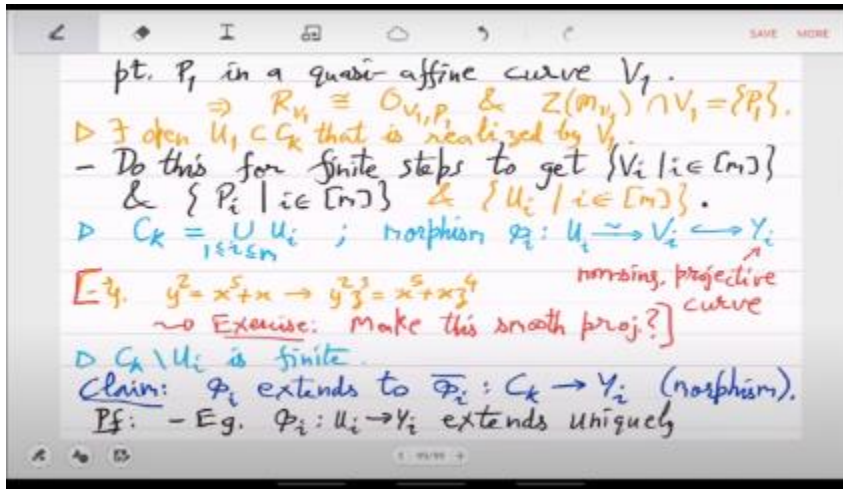 SAVE MORE
pt. P₁ in a quasi-affine curve V₁.
⇒ R_{v₁} ≅ O_{V₁,P₁} & Z(m_{v₁}) ∩ V₁ = {P₁}.
▷ ∃ open U₁ ⊂ C_K that is realized by V₁.
- Do this for finite steps to get {V_i | i ∈ [m]}
& {P_i | i ∈ [m]} & {U_i | i ∈ [m]}.
▷ C_K = ∪_{1≤i≤m} U_i ; morphism φ_i : U_i ⥲ V_i ↪ Y_i
nonsing. projective
curve
[E.g. y² = x⁵+x → y²z³ = x⁵+xz⁴
⇝ Exercise: Make this smooth proj.?]
▷ C_K \ U_i is finite.
Claim: φ_i extends to φ̅_i : C_K → Y_i (morphism).
Pf: - Eg. φ_i : U_i → Y_i extends uniquely